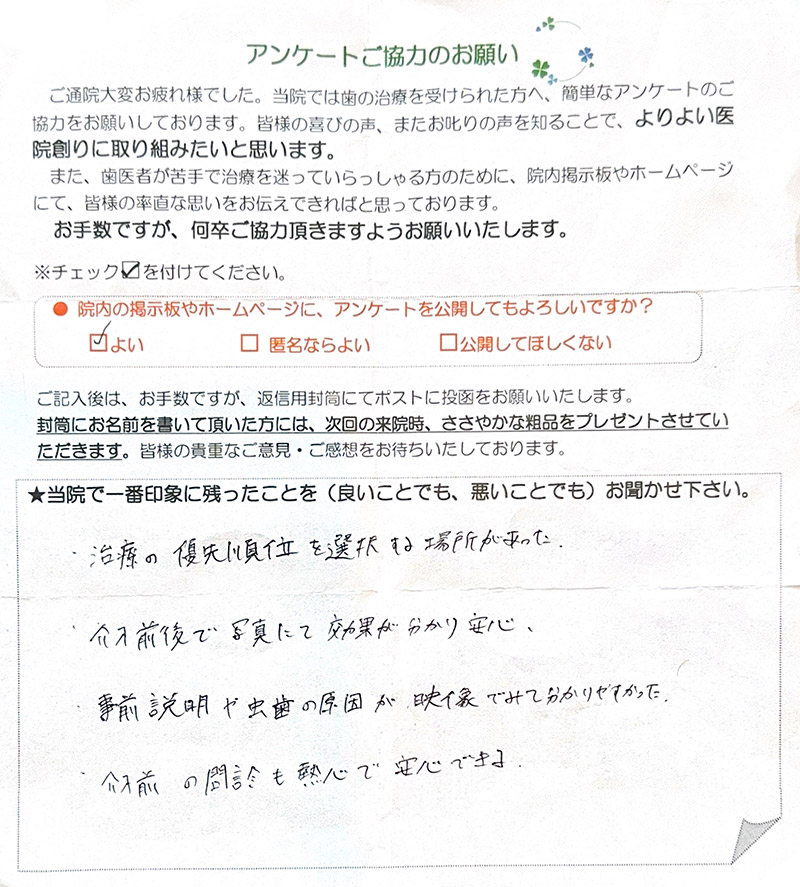 アンケートご協力のお願い
ご通院大変お疲れ様でした。当院では歯の治療を受けられた方へ、簡単なアンケートのご
協力をお願いしております。皆様の喜びの声、またお叱りの声を知ることで、よりよい医
院創りに取り組みたいと思います。
また、歯医者が苦手で治療を迷っていらっしゃる方のために、院内掲示板やホームページ
にて、皆様の率直な思いをお伝えできればと思っております。
お手数ですが、何卒ご協力頂きますようお願いいたします。
※チェック☑を付けてください。
● 院内の掲示板やホームページに、アンケートを公開してもよろしいですか？
☑よい □ 匿名ならよい □公開してほしくない
ご記入後は、お手数ですが、返信用封筒にてポストに投函をお願いいたします。
封筒にお名前を書いて頂いた方には、次回の来院時、ささやかな粗品をプレゼントさせてい
ただきます。皆様の貴重なご意見・ご感想をお待ちいたしております。
★当院で一番印象に残ったことを（良いことでも、悪いことでも）お聞かせ下さい。
・治療の優先順位を選択する場所があった.
・介才前後で写真にて効果が分かり安心、
・事前説明や虫歯の原因が映像でみて分かりやすかった.
・介才前の問診も熱心で安心できる.